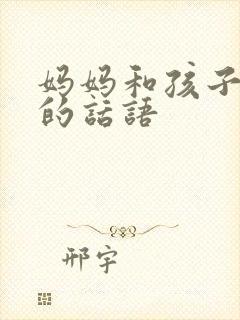 妈妈和孩子
的話語
邢宇